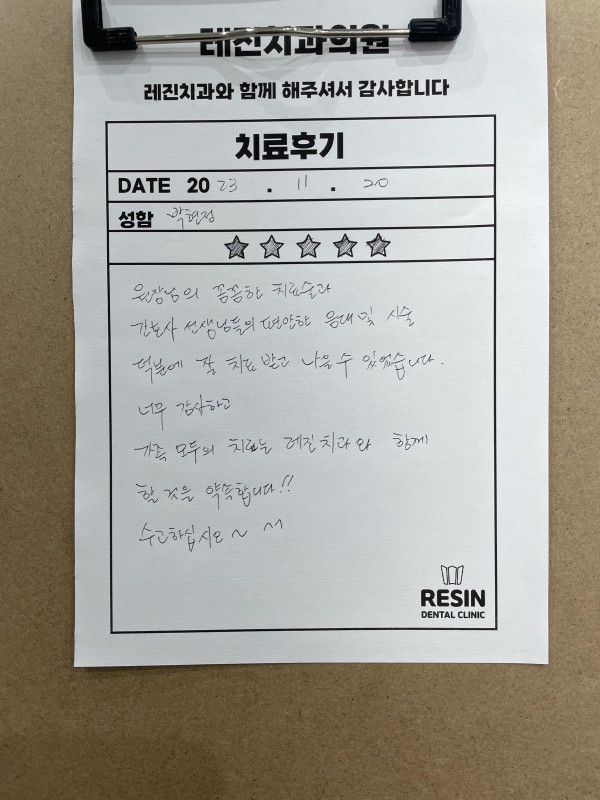 레진치과의원
레진치과와 함께 해주셔서 감사합니다
치료후기
DATE 2023 . 11 . 20
성함 박현정
원장님의 꼼꼼한 치료술과
간호사 선생님들의 편안한 응대 및 시술
덕분에 잘 치료 받고 나을 수 있었습니다.
너무 감사하고
가족 모두의 치료는 레진치과와 함께
할 것을 약속합니다!!
수고하십시오~ ^^
RESIN
DENTAL CLINIC